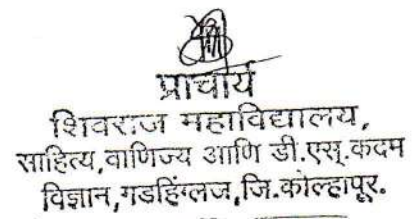 प्राचार्य
शिवराज महाविद्यालय,
साहित्य,वाणिज्य आणि डी.एस्.कदम
विज्ञान,गडहिंग्लज,जि.कोल्हापूर.